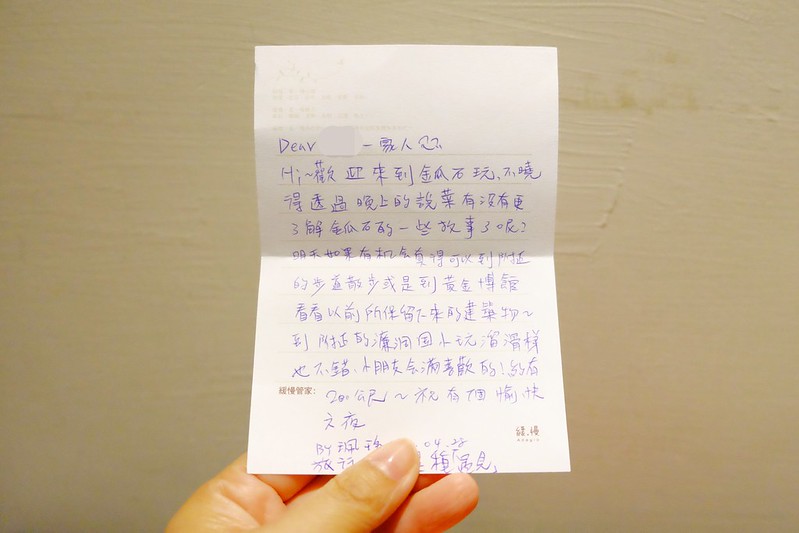 Dear 一家人您
Hi~歡迎來到金瓜石玩、不曉
得透過晚上的說菜有沒有更
了解金瓜石的一些故事了呢?
明天如果有机会真得可以到附近
的步道散步或是到黃金博館
看看以前所保留下來的建築物~
到附近的濂洞国小玩溜滑梯
也不錯、小朋友会滿喜歡的!約有
緩慢管家: 200公尺~祝有個愉快
之夜
BY 珮 04.28
旅行 種 遇見。
緩。慢